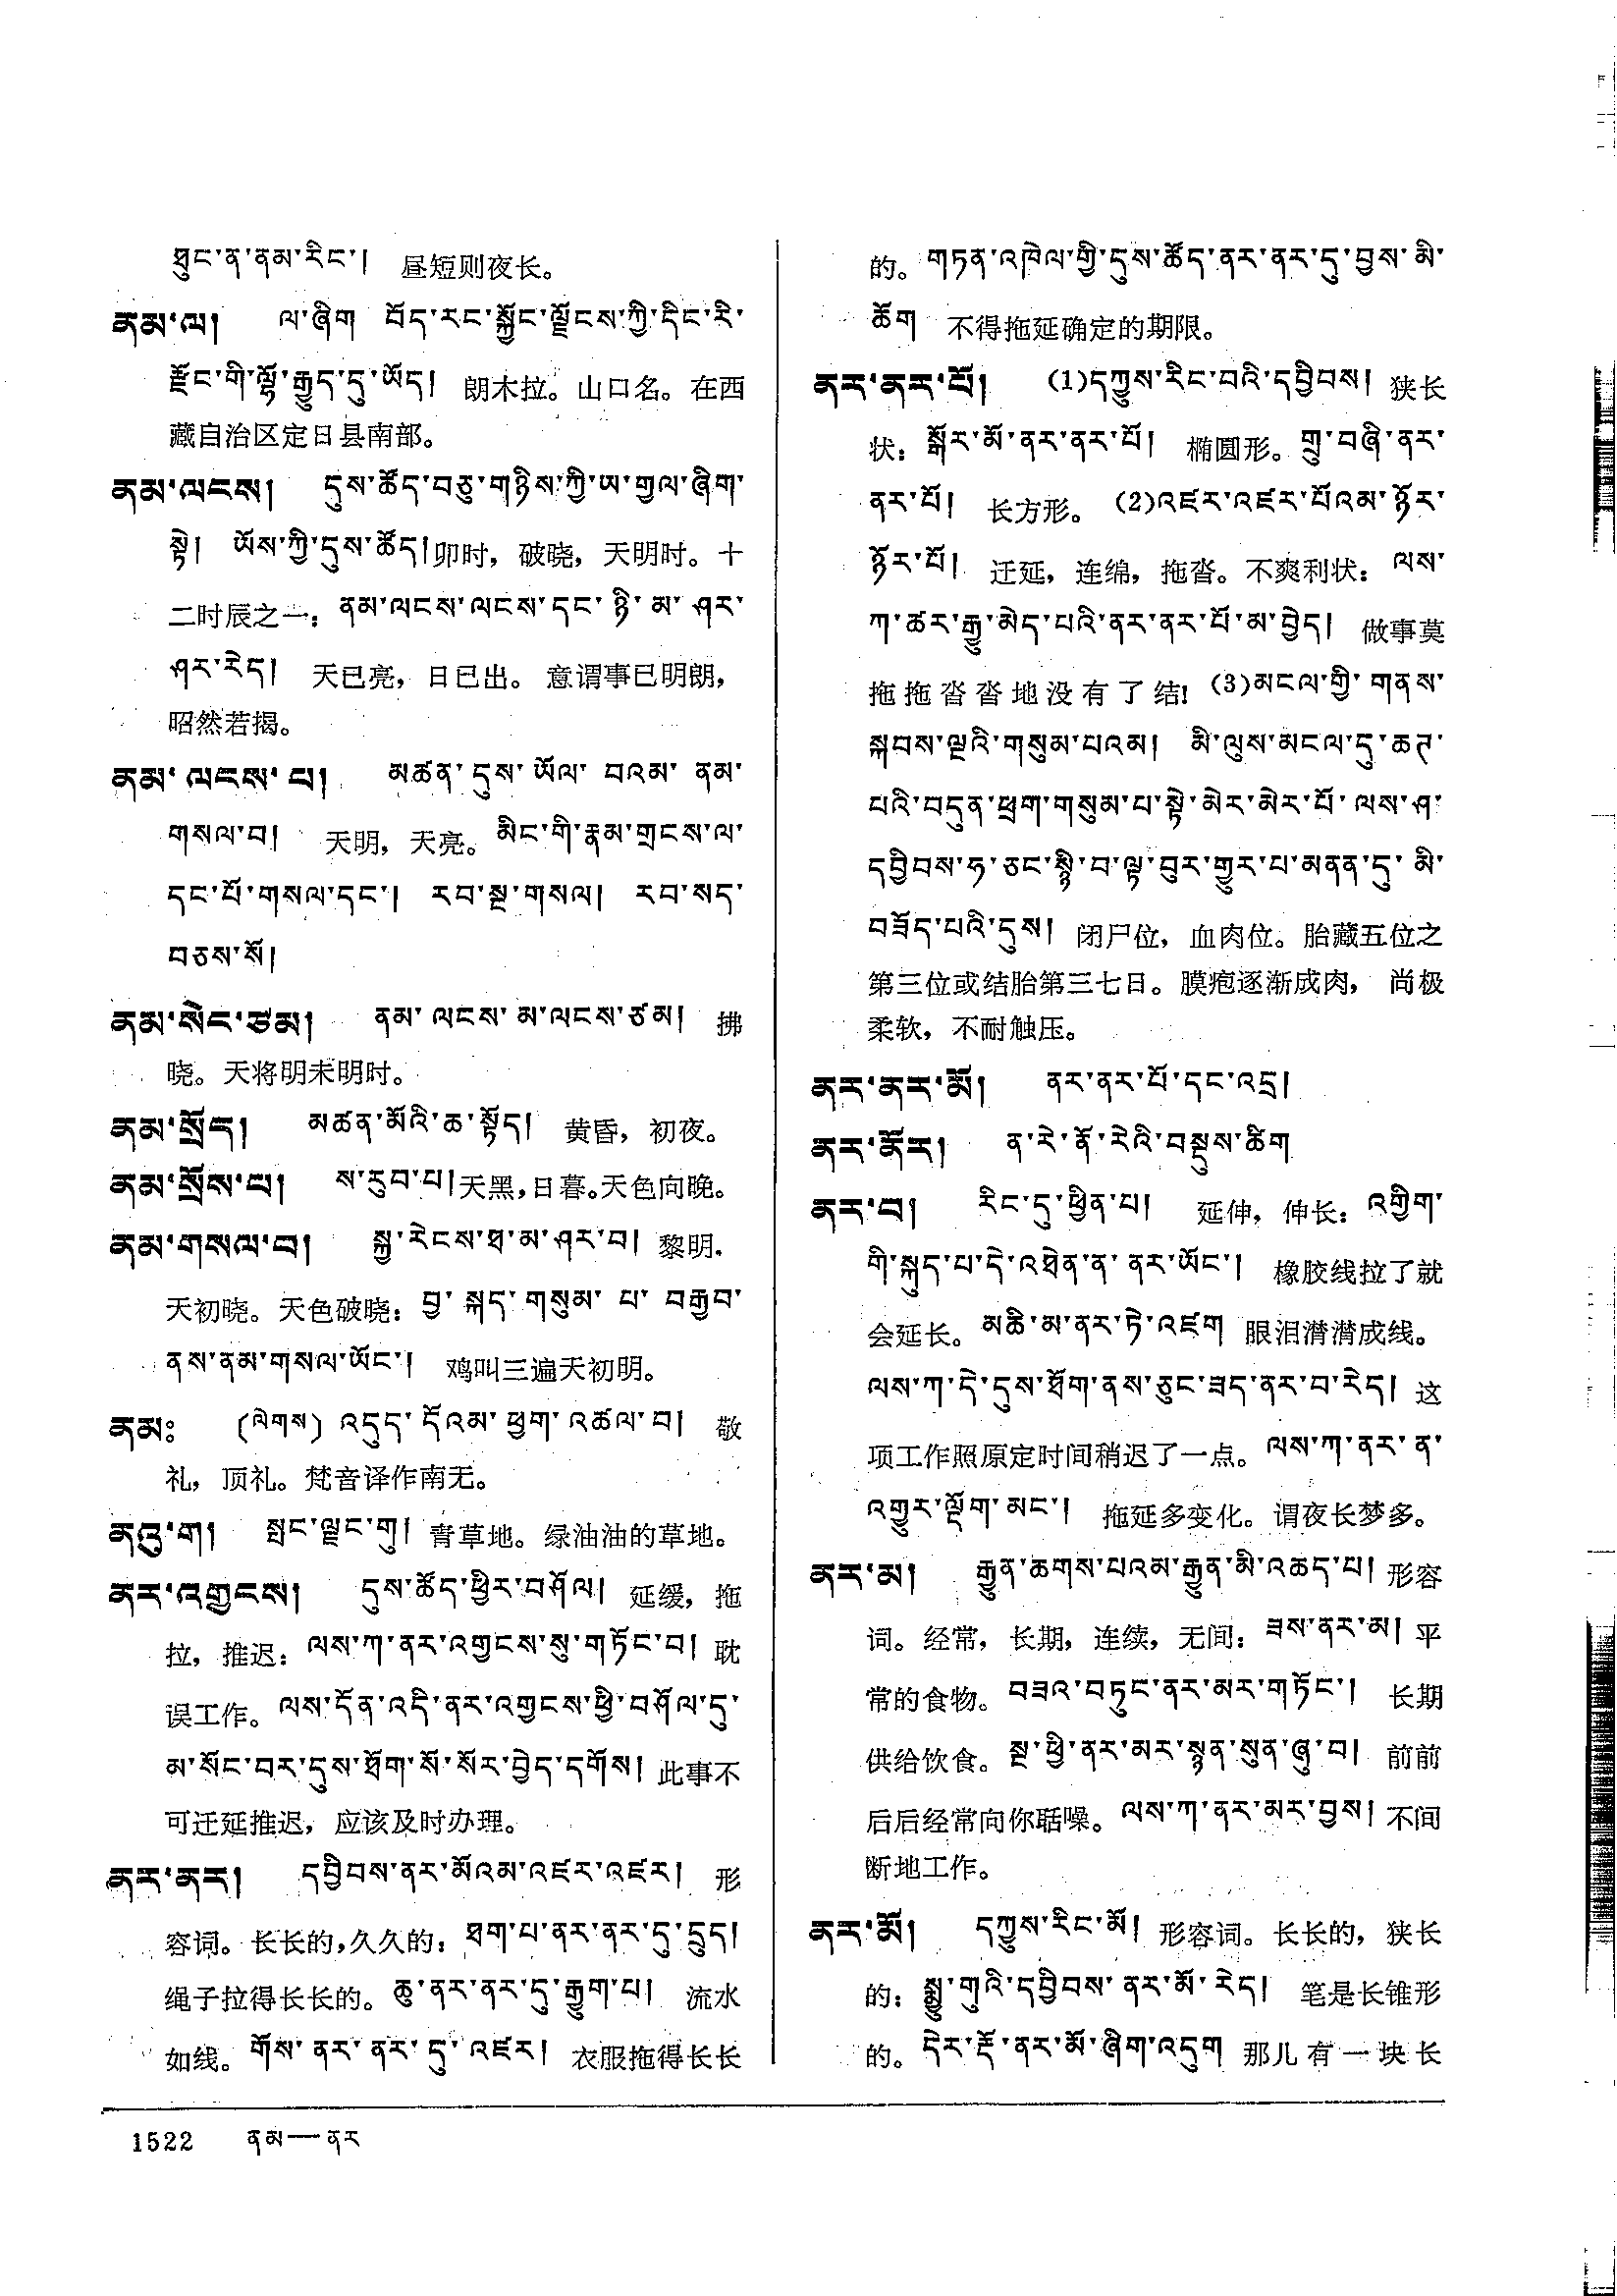 ཐུང་ན་ནམ་རིང་། 昼短则夜长。
ནམ་ལ། ལ་ཞིག བོད་རང་སྐྱོང་ལྗོངས་ཀྱི་དིང་རི་
རྫོང་གི་ལྷོ་རྒྱུད་དུ་ཡོད། 朗木拉。山口名。在西
藏自治区定日县南部。
ནམ་ལངས། དུས་ཚོད་བཅུ་གཉིས་ཀྱི་ཨ་གྱལ་ཞིག་
སྟེ། ཡོས་ཀྱི་དུས་ཚོད། 卯时，破晓，天明时。十
二时辰之一：ནམ་ལངས་ལངས་དང་ཉི་མ་ཤར་
ཤར་རེད། 天已亮，日已出。意谓事已明朗，
昭然若揭。
ནམ་ལངས་པ། མཚན་དུས་ཡོལ་བའམ་ནམ་
གསལ་བ། 天明，天亮。མིང་གི་རྣམ་གྲངས་ལ་
དང་པོ་གསལ་དང་། རབ་སྔ་གསལ། རབ་སད་
བཅས་སོ།
ནམ་སེང་ཙམ། ནམ་ལངས་མ་ལངས་ཙམ། 拂
晓。天将明未明时。
ནམ་སྲོད། མཚན་མོའི་ཆ་སྟོད། 黄昏，初夜。
ནམ་སྲོས་པ། ས་རུབ་པ། 天黑，日暮。天色向晚。
ནམ་གསལ་བ། སྐྱ་རེངས་ཐ་མ་ཤར་བ། 黎明．
天初晓。天色破晓：བྱ་སྐད་གསུམ་པ་བརྒྱབ་
ནས་ནམ་གསལ་ཡོང་། 鸡叫三遍天初明。
ནམཿ (ལེགས) འདུད་དོའམ་ཕྱག་འཚལ་བ། 敬
礼，顶礼。梵音译作南无。
ནའུ་ག། སྤང་ལྗང་གུ། 青草地。绿油油的草地。
ནར་འགྱངས། དུས་ཚོད་ཕྱིར་བཤོལ། 延缓，拖
拉，推迟：ལས་ཀ་ནར་འགྱངས་སུ་གཏོང་བ། 耽
误工作。ལས་དོན་འདི་ནར་འགྱངས་ཕྱི་བཤོལ་དུ་
མ་སོང་བར་དུས་ཐོག་སོ་སོར་བྱེད་དགོས། 此事不
可迁延推迟，应该及时办理。
ནར་ནར། དབྱིབས་ནར་མོའམ་འཇར་འཇར། 形
容词。长长的，久久的：ཐག་པ་ནར་ནར་དུ་དྲུད།
绳子拉得长长的。ཆུ་ནར་ནར་དུ་རྒྱུག་པ། 流水
如线。གོས་ནར་ནར་དུ་འཇར། 衣服拖得长长
的。གཏན་འཁེལ་གྱི་དུས་ཚོད་ནར་ནར་དུ་བྱས་མི་
ཆོག 不得拖延确定的期限。
ནར་ནར་པོ། (1)དཀྱུས་རིང་བའི་དབྱིབས། 狭长
状：སྒོར་མོ་ནར་ནར་པོ། 椭圆形。གྲུ་བཞི་ནར་
ནར་པོ། 长方形。(2)འཇར་འཇར་པོའམ་ཉོར་
ཉོར་པོ། 迁延，连绵，拖沓。不爽利状：ལས་
ཀ་ཚར་རྒྱུ་མེད་པའི་ནར་ནར་པོ་མ་བྱེད། 做事莫
拖拖沓沓地没有了结！(3)མངལ་གྱི་གནས་
སྐབས་ལྔའི་གསུམ་པའམ། མི་ལུས་མངལ་དུ་ཆཊ་
པའི་བདུན་ཕྲག་གསུམ་པ་སྟེ་མེར་མེར་པོ་ལས་ཤ་
དབྱིབས་ཧ་ཅང་སྙི་བ་ལྟ་བུར་གྱུར་པ་མནན་དུ་མི་
བཟོད་པའི་དུས། 闭尸位，血肉位。胎藏五位之
第三位或结胎第三七日。膜疱逐渐成肉，尚极
柔软，不耐触压。
ནར་ནར་མོ། ནར་ནར་པོ་དང་འདྲ།
ནར་ནོར། ན་རེ་ནོ་རེའི་བསྡུས་ཚིག
ནར་བ། རིང་དུ་ཕྱིན་པ། 延伸，伸长：འགྱིག་
གི་སྐུད་པ་དེ་འཐེན་ན་ནར་ཡོང་། 橡胶线拉了就
会延长。མཆི་མ་ནར་ཏེ་འཇག 眼泪潸潸成线。
ལས་ཀ་དེ་དུས་ཐོག་ནས་ཅུང་ཟད་ནར་བ་རེད། 这
项工作照原定时间稍迟了一点。ལས་ཀ་ནར་ན་
འགྱུར་ལྡོག་མང་། 拖延多变化。谓夜长梦多。
ནར་མ། རྒྱུན་ཆགས་པའམ་རྒྱུན་མི་འཆད་པ། 形容
词。经常，长期，连续，无间：ཟས་ནར་མ། 平
常的食物。བཟའ་བཏུང་ནར་མར་གཏོང་། 长期
供给饮食。སྔ་ཕྱི་ནར་མར་སྙན་སུན་ཞུ་བ། 前前
后后经常向你聒噪。ལས་ཀ་ནར་མར་བྱས། 不间
断地工作。
ནར་མོ། དཀྱུས་རིང་མོ། 形容词。长长的，狭长
的：སྨྱུ་གུའི་དབྱིབས་ནར་མོ་རེད། 笔是长锥形
的。དེར་རྡོ་ནར་མོ་ཞིག་འདུག 那儿有一块长
1522 ནམ—ནར